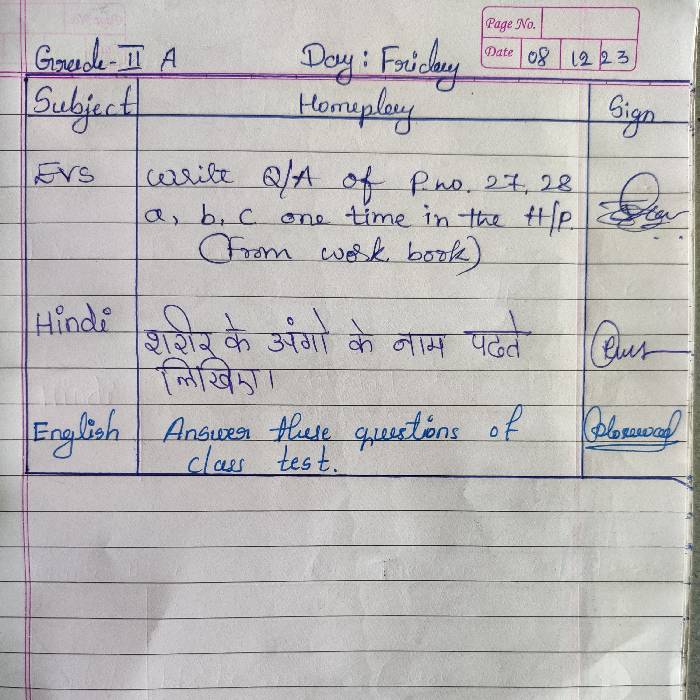 Page No.
Grade-II A Day: Friday Date 08 12 23
Subject Homeplay Sign
EVS write Q/A of P.no. 27, 28
a, b, c one time in the H/P.
(From work book)
Hindi शरीर के अंगो के नाम पढते
लिखिए।
English Answer these questions of
class test.